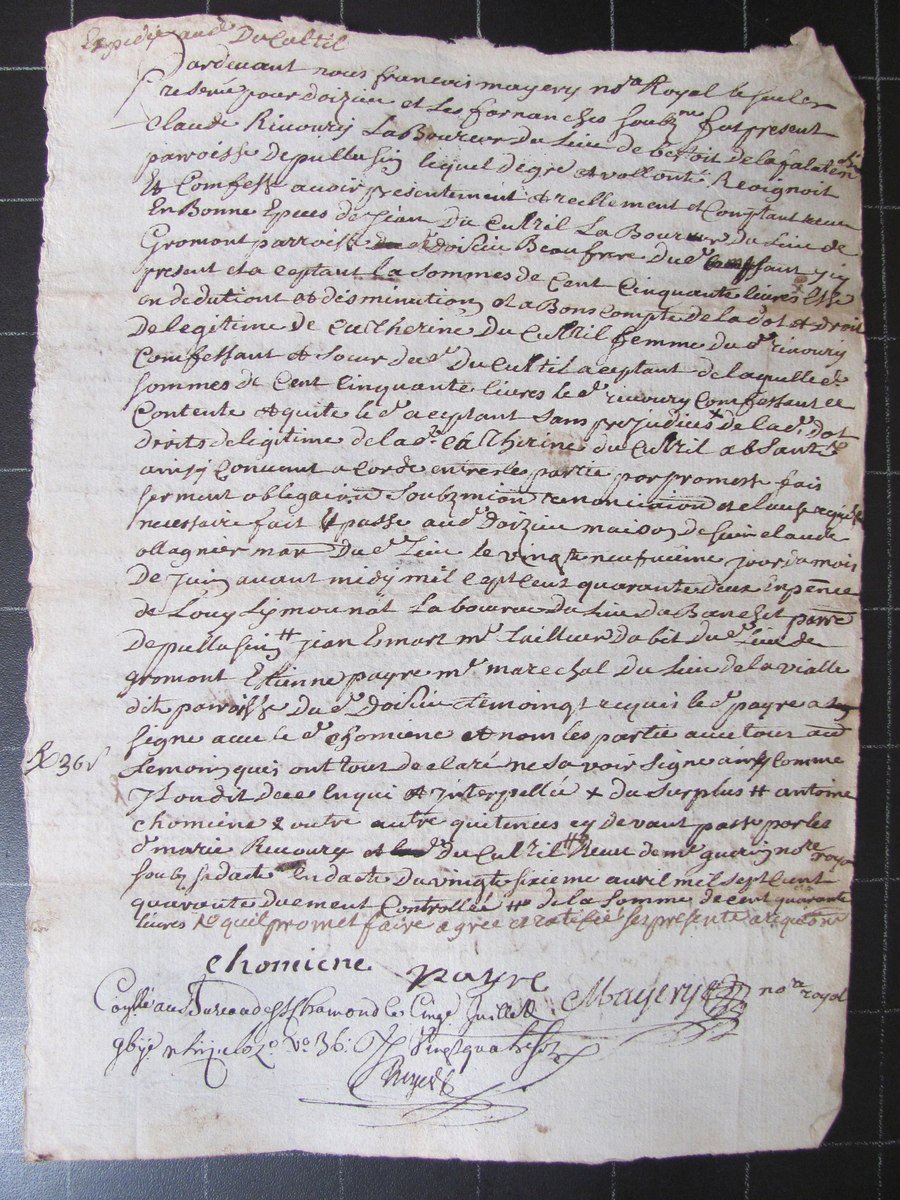 Expedié aud. Ducultil
Pardevant nous francois mayery no.re Royal le seul en
reservé pour doizieu et les fornanches soubz.ne fut present
claude Riuoury La Boureur du Lieu de de la
paroisse de pullusin lequel de gre et vollonté Recoignoit
Et Comfesse auoir presentement et reellement et Comptant receu
En Bonne Epeces de Jean Du Cultil La Boureur du Lieu de
Gromont parroisse dud. doisieu Beaufrere dud. Comfessant y cy
present et aceptant la sommes de Cent Cinquante liures Et ce
en dedutiont et desminution et a Bons compte de la dot et droit
De legitime de Catherine du Cultil femme dud. riuoury
Comfessant et soeur dud. du Cultil aceptant de laquelle d.
sommes de Cent Cinquante liures led. riuoury Comfessant ce
Contente et quite led. aceptant sans prejudices x de lad. dot
droits de legitime de lad. Catherine du Cultil absante
ainsy Conuenut acorde entre les partie par promesse fois
serment obligaiont Soubzmiont renonciaiont et clause requise
necessaire fait & passe aud. doizieu maison de Jean claude
ollagnier mar. dud. Lieu le vingt neufuieme jour du mois
De juin auant midy mil sept cent quarante deux En p.nce
de Louy Lymounot La boureur du Lieu du Banchet parre
De pullusin # jean Esmart m.e tailleur dabit dud. Lieu de
gromont Etienne payre m.e marechal du Lieu de la vialle
dit paroisse dud. Doisieu temoingt requis led. payre a
signe auec led. chomiene et nom les partie auec tour aud
temoin quis ont tour declaré ne sauoir signe ainsy comme
J Lon dit de ce Enqui et Interpellée x du surplus # antoine
chomiene & outre autre quitences cy devant passé par les
d. marie Riuoury et du Cultil # Receu de m.e guerin no.re royal
soubz sa dacte En dacte du vingt sixieme auril mil sept cent
quarante duement Controllée # de la somme de cent quarante
liures quil promet faire agrée et ratifié ses presente a
R 36 s
chomiene payre Mayery no.re royal
Con.lé au Bureau de St Chamond le Cinq Juillet
f.o v.o 36. R. vingt quatre sols